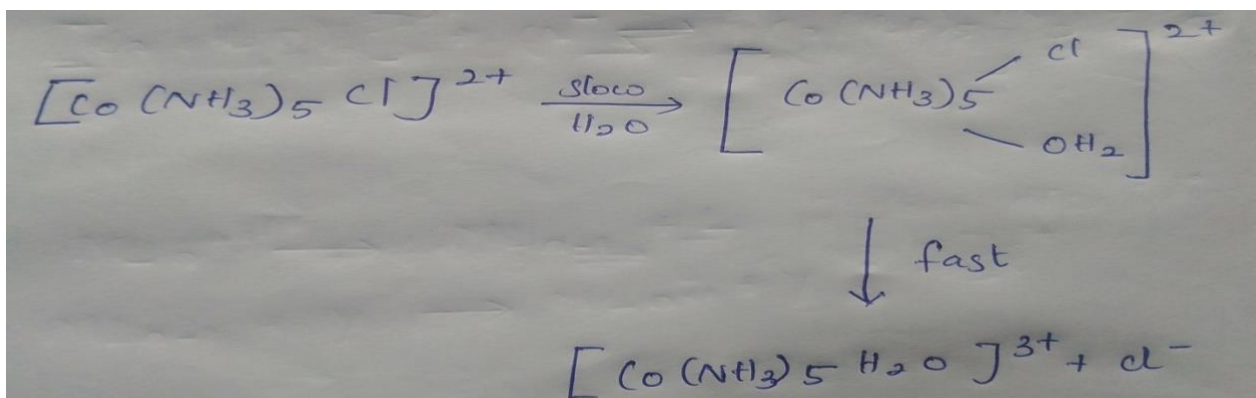 [Co(NH3)5Cl]2+ slow H2O [Co(NH3)5 Cl OH2]2+
fast
[Co(NH3)5H2O]3+ + Cl-